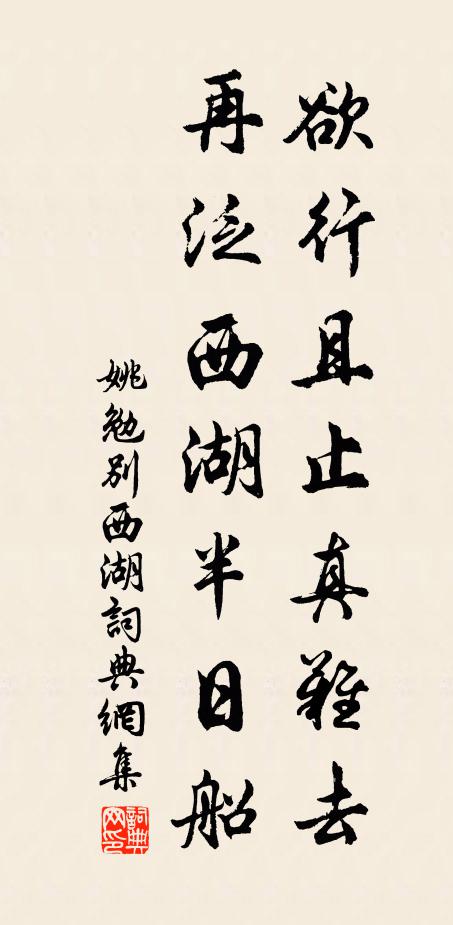 欲行且止真難去
再泛西湖半日船
姚勉別西湖詞典網集
詞典网印